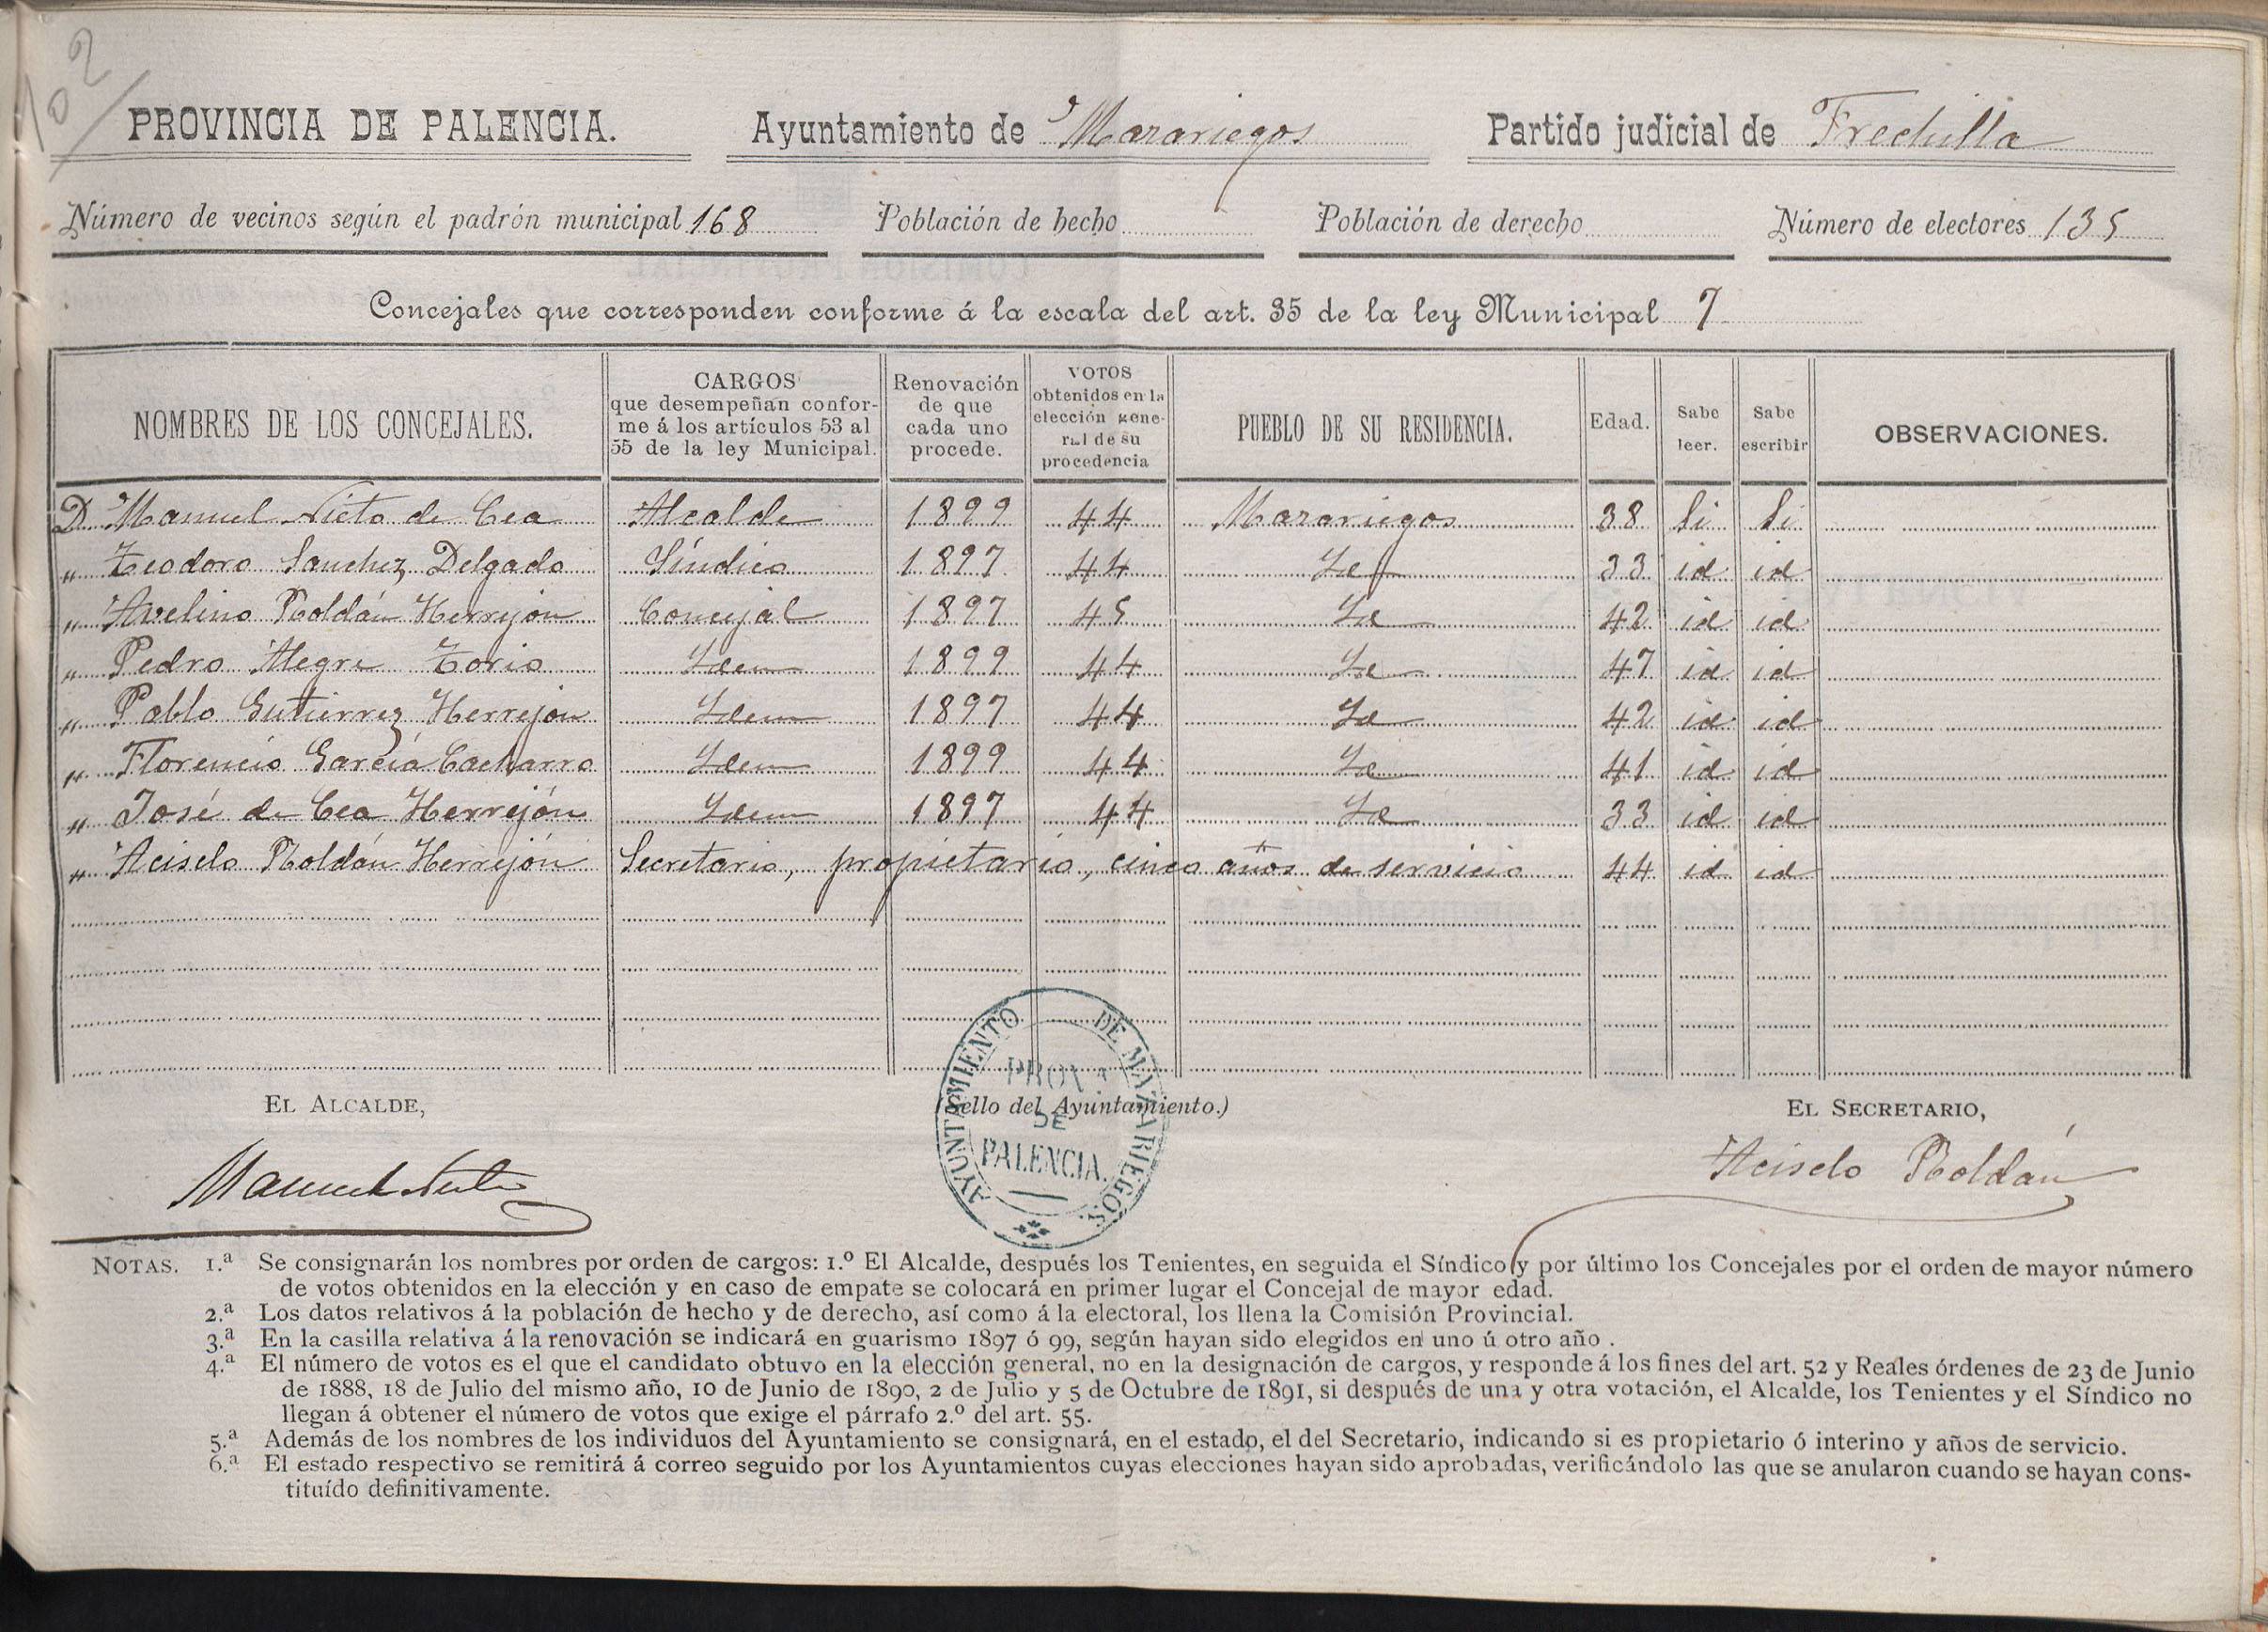 102
PROVINCIA DE PALENCIA. Ayuntamiento de Mazariegos Partido judicial de Frechilla
Número de vecinos según el padrón municipal 168 Población de hecho Población de derecho Número de electores 135
Concejales que corresponden conforme á la escala del art. 35 de la ley Municipal 7
NOMBRES DE LOS CONCEJALES. CARGOS que desempeñan confor- me á los artículos 53 al 55 de la ley Municipal. Renovación de que cada uno procede. VOTOS obtenidos en la elección gene- ral de su procedencia PUEBLO DE SU RESIDENCIA. Edad. Sabe leer. Sabe escribir OBSERVACIONES.
D. Manuel Nieto de Cea Alcalde 1899 44 Mazariegos 38 Si Si
" Teodoro Sanchez Delgado Síndico 1897 44 Id 33 id id
" Avelino Roldán Herrejón Concejal 1897 45 Id 42 id id
" Pedro Alegre Torio Idem 1899 44 Id 47 id id
" Pablo Gutierrez Herrejon Idem 1897 44 Id 42 id id
" Florencio García Cacharro Idem 1899 44 Id 41 id id
" José de Cea Herrejón Idem 1897 44 Id 33 id id
" Acisclo Roldán Herrejón Secretario, propietario, cinco años de servicio 44 id id
EL ALCALDE, (Sello del Ayuntamiento.) EL SECRETARIO,
AYUNTAMIENTO DE MAZARIEGOS
PROVª
DE
PALENCIA.
Manuel Nieto Acisclo Roldán
NOTAS. 1.ª Se consignarán los nombres por orden de cargos: 1.º El Alcalde, después los Tenientes, en seguida el Síndico y por último los Concejales por el orden de mayor número
de votos obtenidos en la elección y en caso de empate se colocará en primer lugar el Concejal de mayor edad.
2.ª Los datos relativos á la población de hecho y de derecho, así como á la electoral, los llena la Comisión Provincial.
3.ª En la casilla relativa á la renovación se indicará en guarismo 1897 ó 99, según hayan sido elegidos en uno ú otro año.
4.ª El número de votos es el que el candidato obtuvo en la elección general, no en la designación de cargos, y responde á los fines del art. 52 y Reales órdenes de 23 de Junio
de 1888, 18 de Julio del mismo año, 10 de Junio de 1890, 2 de Julio y 5 de Octubre de 1891, si después de una y otra votación, el Alcalde, los Tenientes y el Síndico no
llegan á obtener el número de votos que exige el párrafo 2.º del art. 55.
5.ª Además de los nombres de los individuos del Ayuntamiento se consignará, en el estado, el del Secretario, indicando si es propietario ó interino y años de servicio.
6.ª El estado respectivo se remitirá á correo seguido por los Ayuntamientos cuyas elecciones hayan sido aprobadas, verificándolo las que se anularon cuando se hayan cons-
tituído definitivamente.